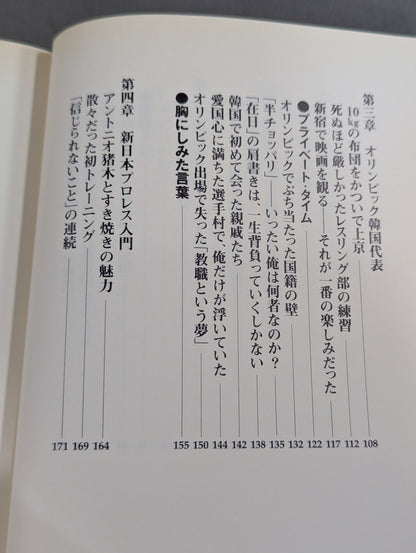 第三章 オリンピック韓国代表
10kgの布団をかついで上京 108
死ぬほど厳しかったレスリング部の練習 112
新宿で映画を観る――それが一番の楽しみだった 117
●プライベート・タイム 122
オリンピックでぶち当たった国籍の壁 132
「半チョッパリ」――いったい俺は何者なのか? 135
「在日」の肩書きは、一生背負っていくしかない 138
韓国で初めて会った親戚たち 142
愛国心に満ちた選手村で、俺だけが浮いていた 144
オリンピック出場で失った「教職という夢」 150
●胸にしみた言葉 155
第四章 新日本プロレス入門
アントニオ猪木とすき焼きの魅力 164
散々だった初トレーニング 169
「信じられないこと」の連続 171